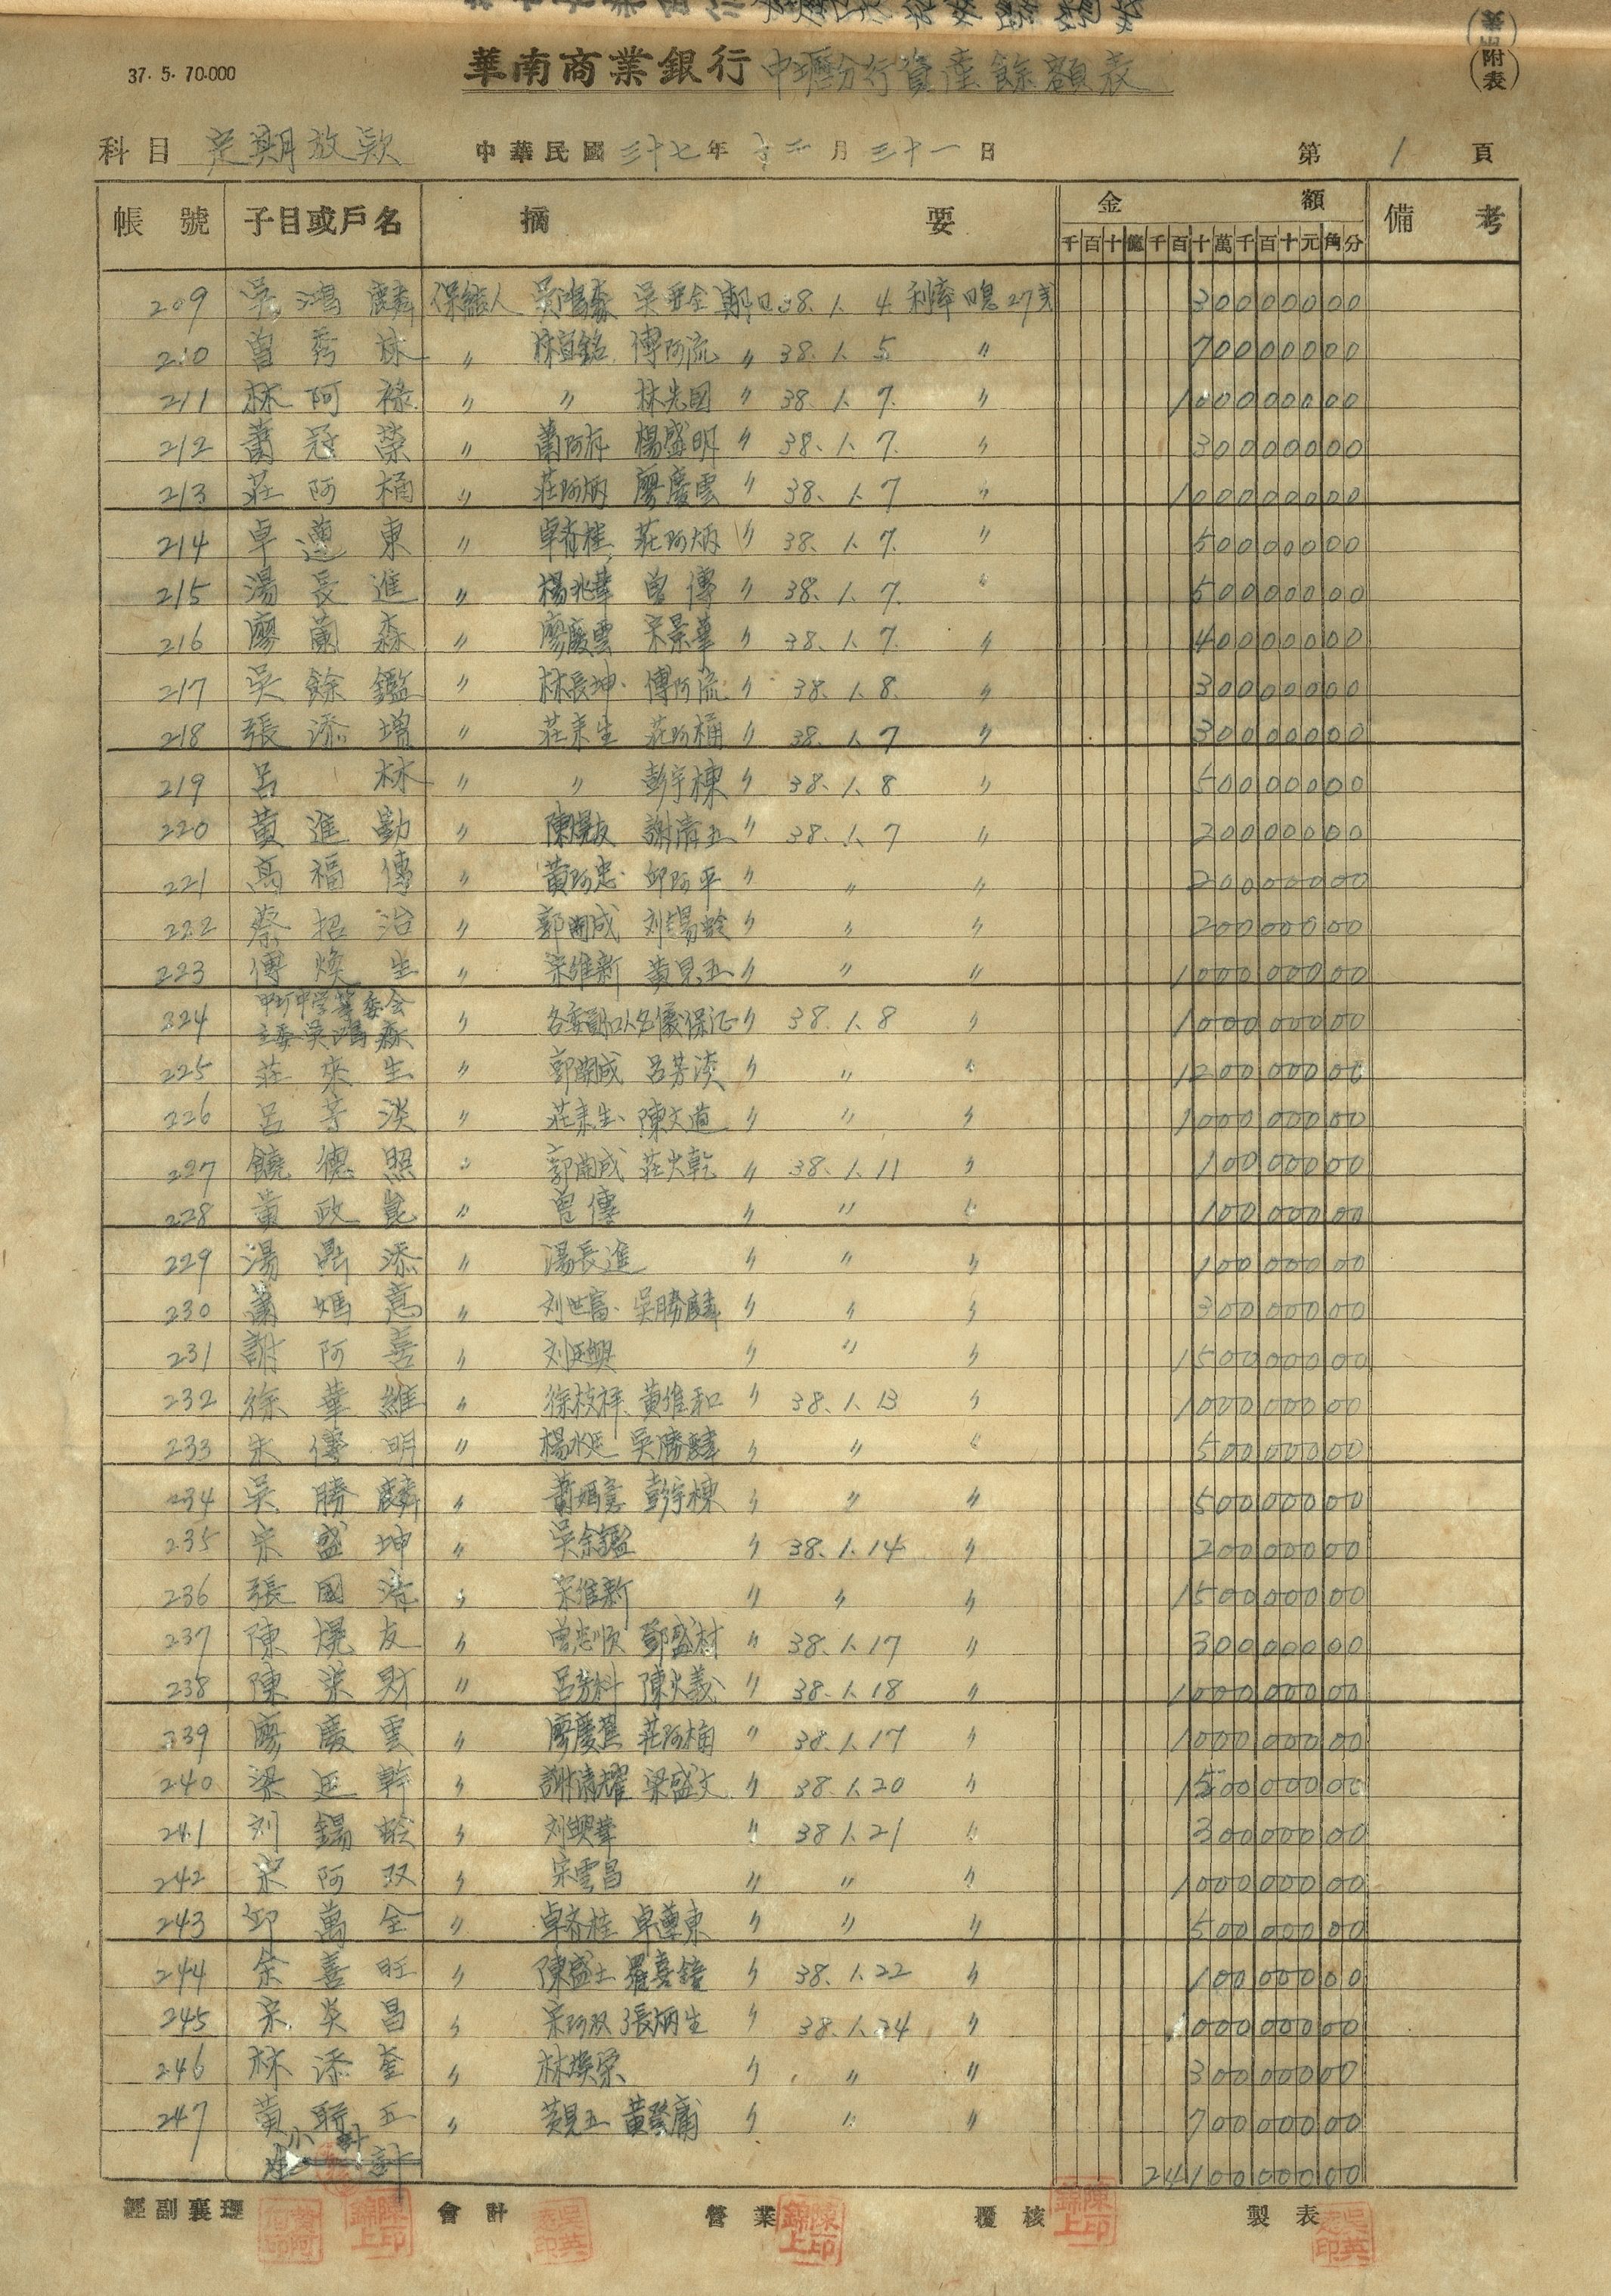 37.5.70.000
華南商業銀行中壢分行資產餘額表
(附表)
科目 定期放款 中華民國三十七年十二月三十一日 第1頁
帳號 子目或戶名 摘要 金額 備考
千百十億千百十萬千百十元角分
209 吳鴻麟 保証人 吳鴻森 吳亚全 期日38.1.4. 利率日息27戈 300000.00
210 曾秀 〃 傅阿流 〃 38.1.5 〃 70000000
211 林阿祿 〃 〃 林光國 〃 38.1.7. 〃 100000000
212 蕭冠榮 〃 蕭阿存 楊盛明 〃 38.1.7. 〃 30000000
213 莊阿桶 〃 莊阿炳 廖慶雲 〃 38.1.7 〃 100000000
214 卓遵東 〃 卓春桂 莊阿炳 〃 38.1.7. 〃 50000000
215 湯長進 〃 楊兆華 曾傳 〃 38.1.7. 〃 50000000
216 廖蘭森 〃 廖慶雲 宋景華 〃 38.1.7. 〃 40000000
217 吳餘鑑 〃 林長坤 傅阿流 〃 38.1.8. 〃 30000000
218 張添增 〃 莊來生 莊阿桶 〃 38.1.7 〃 30000000
219 呂林 〃 〃 彭宇棟 〃 38.1.8 〃 50000000
220 黃進勤 〃 陳燦友 謝清五 〃 38.1.7 〃 20000000
221 高福傳 〃 黃阿忠 邱阿平 〃 〃 〃 20000000
222 蔡招治 〃 郭開成 刘錫齡 〃 〃 〃 20000000
223 傅煥生 〃 宋維新 黃見五 〃 〃 〃 100000000
324 中圻中学籌委会 主委吳鴻森 〃 各委員 保証 〃 38.1.8 〃 100000000
225 莊來生 〃 郭開成 呂芳淡 〃 〃 〃 120000000
226 呂芳淡 〃 莊來生 陳文道 〃 〃 〃 100000000
227 饒德照 〃 郭開成 莊火乾 〃 38.1.11 〃 10000000
228 黃政崑 〃 曾傳 〃 〃 〃 10000000
229 湯鼎添 〃 湯長進 〃 〃 〃 10000000
230 蕭媽意 〃 刘世富 吳勝麟 〃 〃 〃 30000000
231 謝阿喜 〃 刘興 〃 〃 〃 150000000
232 徐華維 〃 徐枝祥 黃維和 〃 38.1.13 〃 100000000
233 朱傳明 〃 楊水 吳勝麟 〃 〃 〃 50000000
234 吳勝麟 〃 蕭媽意 彭宇棟 〃 〃 〃 50000000
235 宋盛坤 〃 吳余鑑 〃 38.1.14 〃 20000000
236 張國清 〃 宋維新 〃 〃 〃 150000000
237 陳燦友 〃 曾志順 鄧盛材 〃 38.1.17 〃 30000000
238 陳榮財 〃 呂芳科 陳火義 〃 38.1.18 〃 100000000
239 廖慶雲 〃 廖慶 莊阿桶 〃 38.1.17 〃 100000000
240 梁廷幹 〃 謝清耀 梁盛文 〃 38.1.20 〃 150000000
241 刘錫齡 〃 刘興華 〃 38 1.21 〃 30000000
242 宋阿双 〃 宋雲昌 〃 〃 〃 100000000
243 邱萬全 〃 卓春桂 卓遵東 〃 〃 〃 50000000
244 余喜旺 〃 陳盛土 羅喜鐘 〃 38.1.22 〃 10000000
245 宋炎昌 〃 宋阿双 張炳生 〃 38.1.24 〃 100000000
246 林添奎 〃 林煥榮 〃 〃 〃 30000000
247 黃聯五 〃 黃見五 黃發甫 〃 〃 〃 70000000
小計 2410000000
經副襄理 會計 營業 覆核 製表